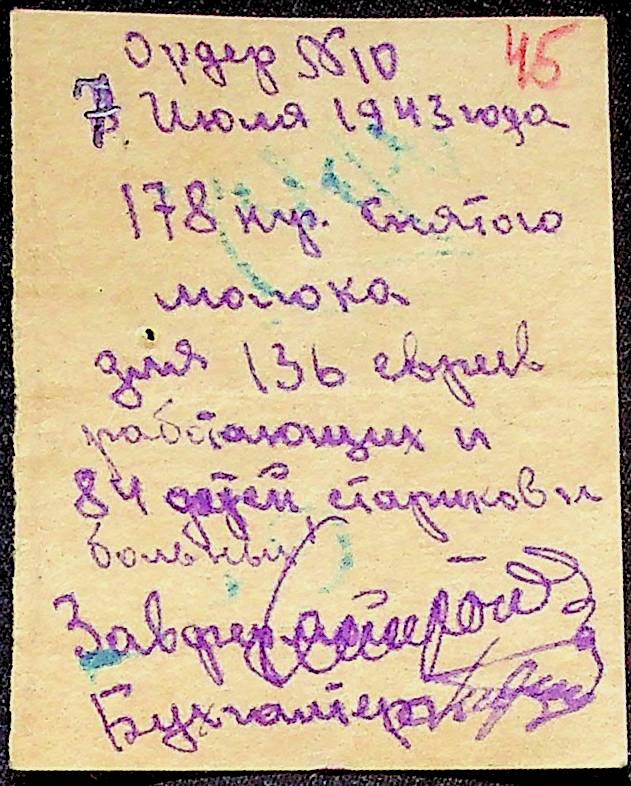 Ордер №10
45
7 Июля 1943 года
178 кгр. снятого
молока
для 136 евреев
работающих и
84 детей, стариков и
больных
Завфер
Бухгалтер